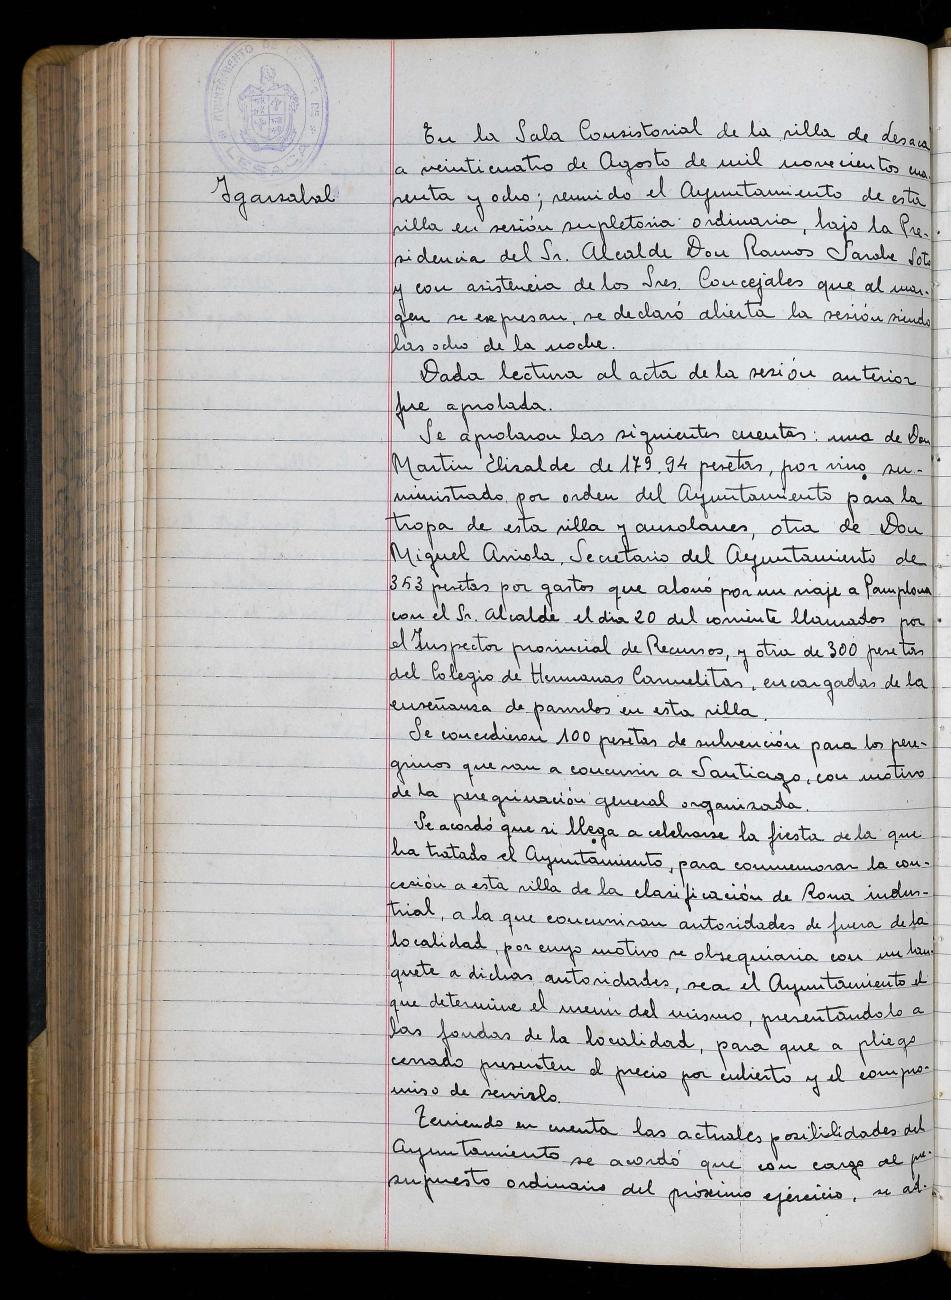 AYUNTAMIENTO DE
LESACA
Igarzabal
En la Sala Consistorial de la villa de Lesaca
a veinticuatro de Agosto de mil novecientos cua-
renta y ocho; reunido el Ayuntamiento de esta
villa en sesión supletoria ordinaria, bajo la Pre-
sidencia del Sr. Alcalde Don Ramos Sarobe Soto
y con asistencia de los Sres. Concejales que al mar-
gen se expresan, se declaró abierta la sesión siendo
las ocho de la noche.
Dada lectura al acta de la sesión anterior
fue aprobada.
Se aprobaron las siguientes cuentas: una de Don
Martin Elizalde de 179.94 pesetas, por vino su-
ministrado por orden del Ayuntamiento para la
tropa de esta villa y auzolanes, otra de Don
Miguel Arriola, Secretario del Ayuntamiento de
353 pesetas por gastos que abonó por un viaje a Pamplona
con el Sr. Alcalde el dia 20 del corriente llamados por
el Inspector provincial de Recursos, y otra de 300 pesetas
del Colegio de Hermanas Carmelitas, encargadas de la
enseñanza de parvulos en esta villa.
Se concedieron 100 pesetas de subvención para los pere-
grinos que van a concurrir a Santiago, con motivo
de la peregrinación general organizada.
Se acordó que si llega a celebrarse la fiesta de la que
ha tratado el Ayuntamiento, para conmemorar la con-
cesión a esta villa de la clasificación de Zona indus-
trial, a la que concurriran autoridades de fuera de la
localidad, por cuyo motivo se obsequiaria con un ban-
quete a dichas autoridades, sea el Ayuntamiento el
que determine el menú del mismo, presentándolo a
las fondas de la localidad, para que a pliego
cerrado presenten el precio por cubierto y el compro-
miso de servirlo.
Teniendo en cuenta las actuales posibilidades del
Ayuntamiento se acordó que con cargo al pre-
supuesto ordinario del próximo ejercicio, se ad-